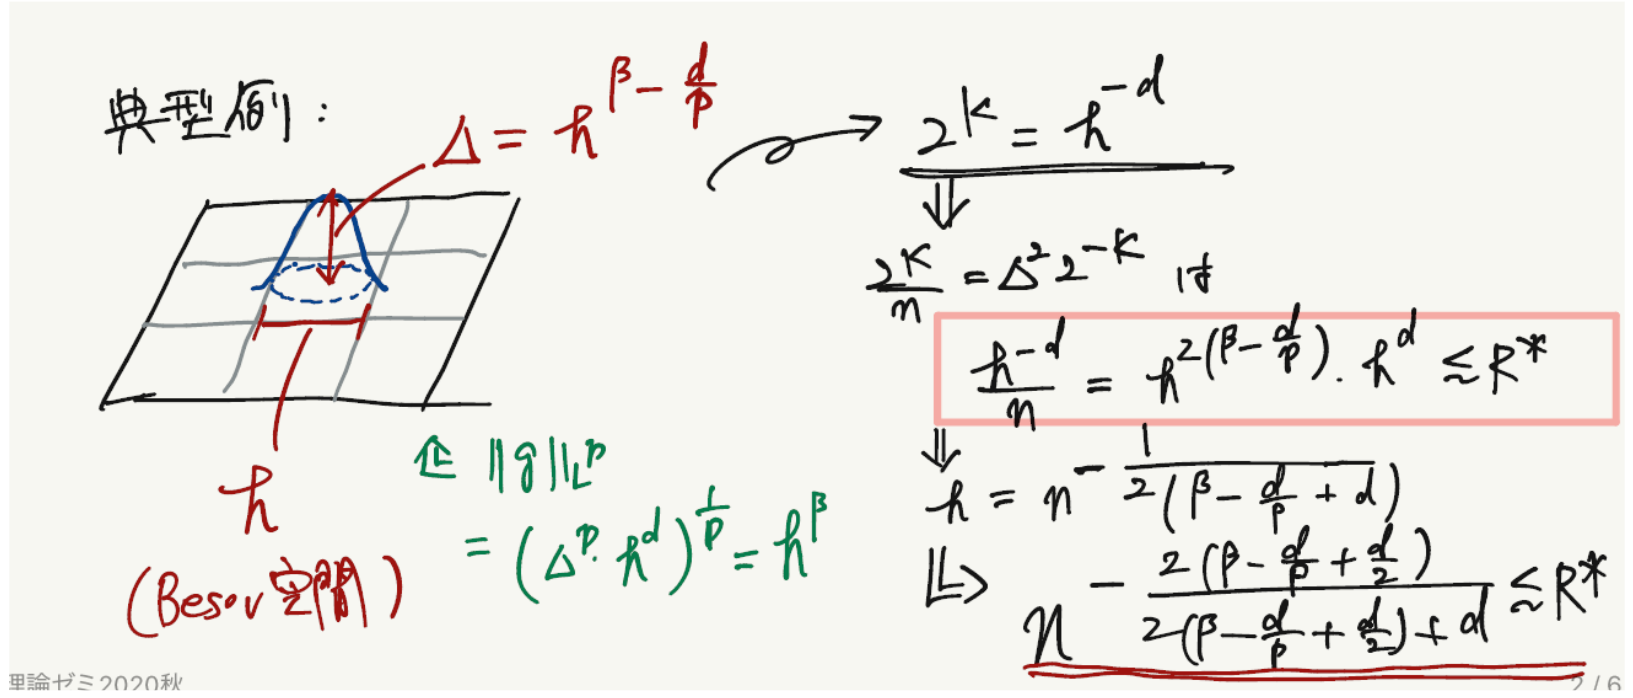 典型例:
Δ = h^{β - d/p}
h
(Besov空間)
⇐ ‖g‖_{L^p}
= (Δ^p · h^d)^{1/p} = h^β
2^K = h^{-d}
⇓
2^K/n = Δ^2 2^{-K} は
h^{-d}/n = h^{2(β - d/p)} · h^d ≲ R*
⇓
h = n^{- 1/(2(β - d/p + d))}
⇒ n^{- 2(β - d/p + d/2)/(2(β - d/p + d/2) + d)} ≲ R*
理論ゼミ2020秋
2 / 6